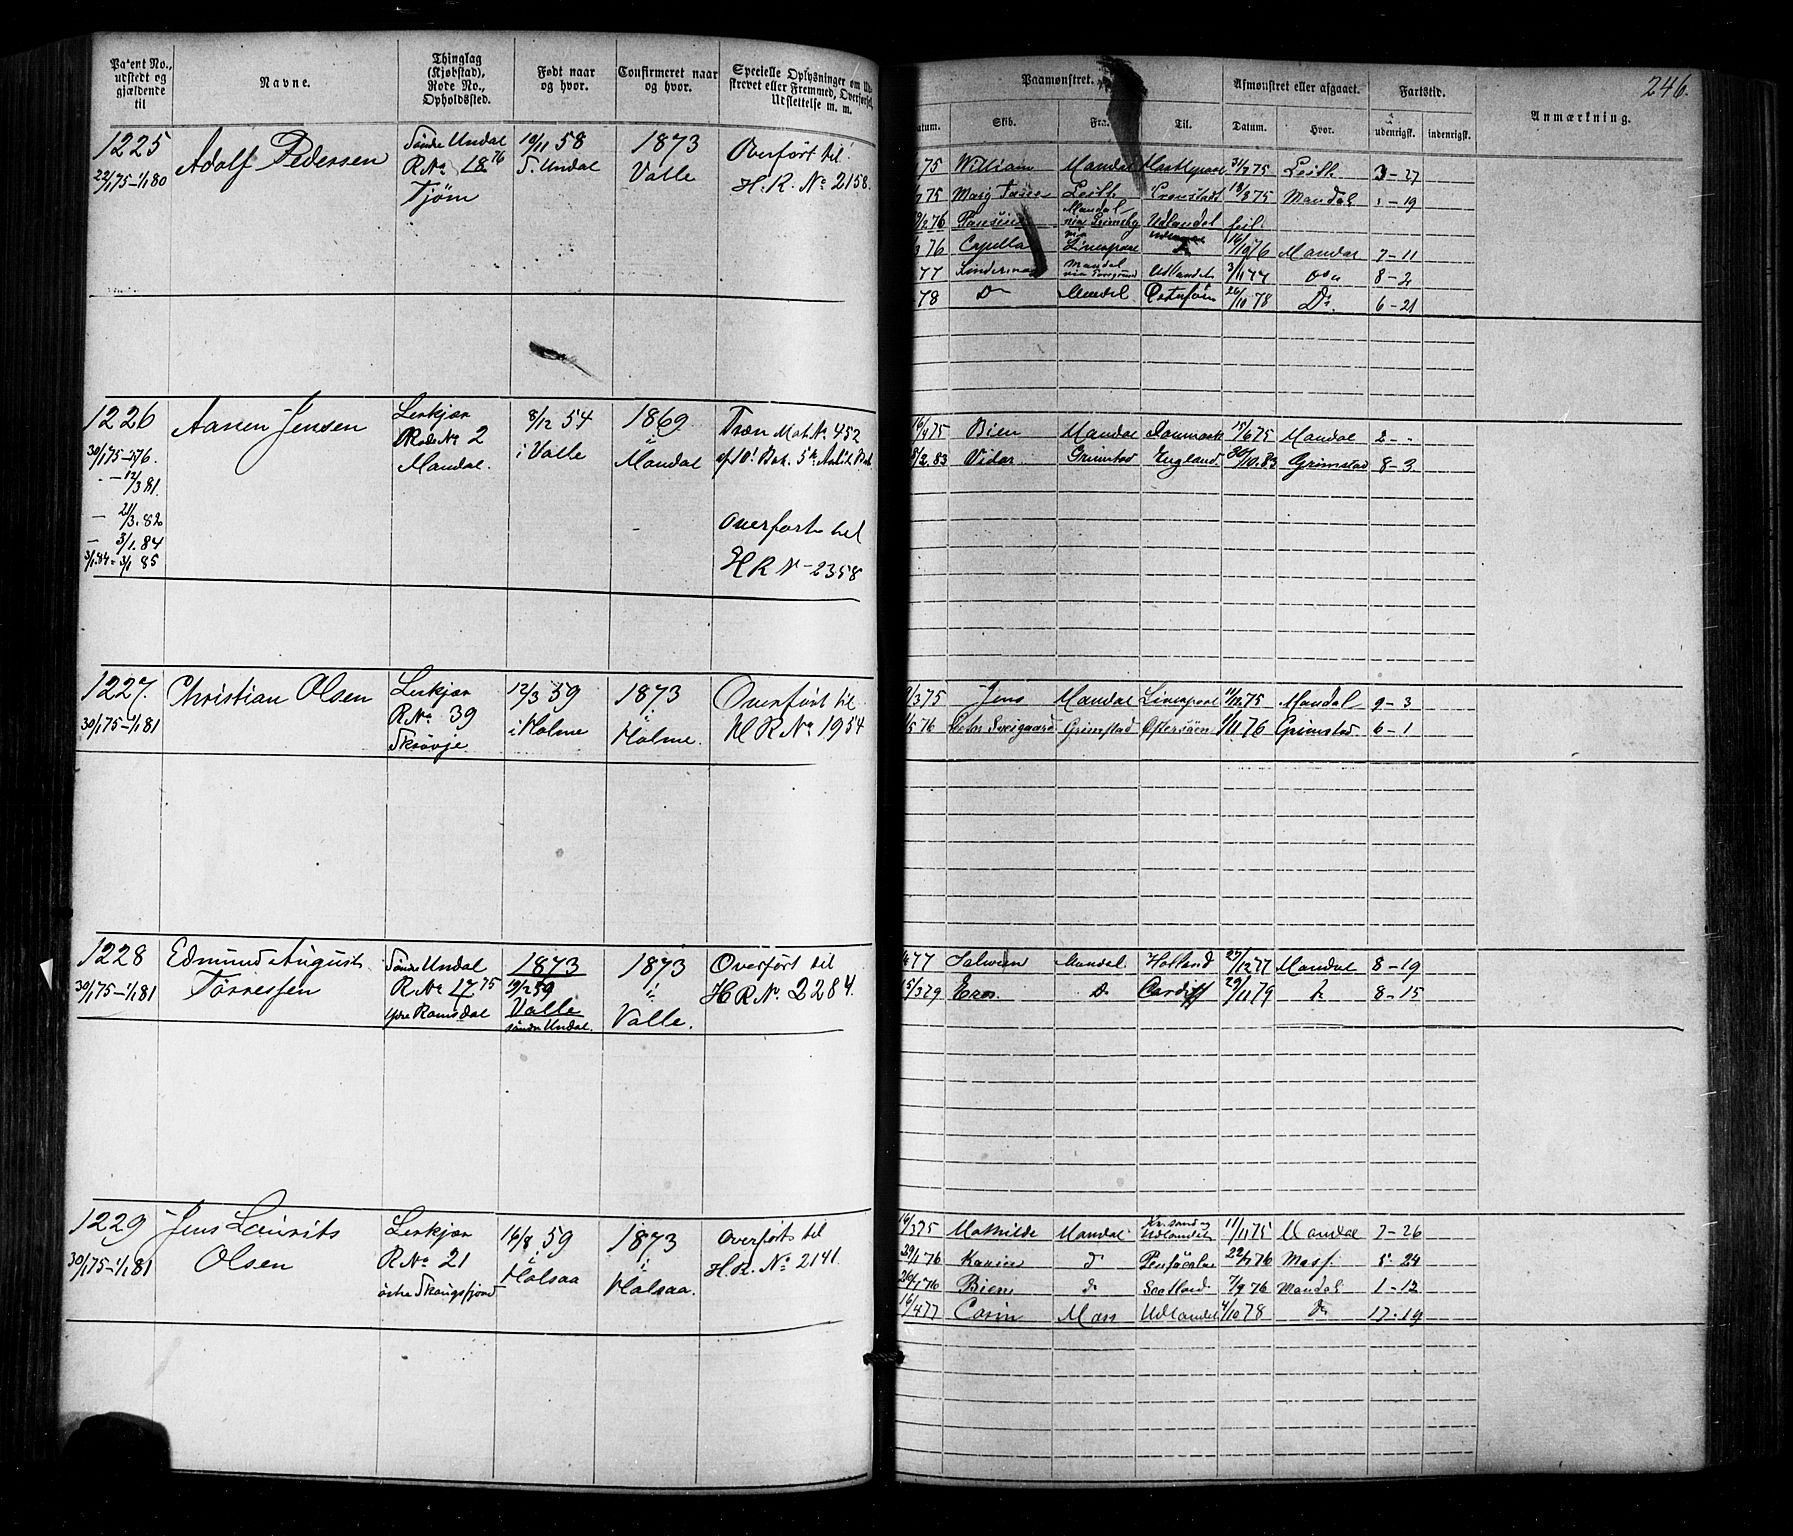 Patent No., udstedt og gjældende til
Navne.
Thinglag (Kjøbstad), Rode No., Opholdssted.
Født naar og hvor.
Confirmeret naar og hvor.
Specielle Oplysninger om Ud-
skrevet eller Fremmed, Overførsel,
Udslettelse m. m.
Paamønstret.
Afmønstret eller afgaaet.
Fartstid.
Anmærkning.
246.
Datum. Skib. Fra. Til. Datum. Hvor. udenrigsk. indenrigsk.
1225
22/1 75-1/1 80
Adolf Pedersen
Søndre Undal
R. No 18 76
Tjøm
19/11 58
S. Undal
1873
Valle
Overført til
H. R. No 2158.
75 William Mandal Hartlepool 31/7 75 Leith 3-27
75 Leith Cronstadt 18/8 75 Mandal 1-19
76 Mandal via Grimsby Udlandet feil.
76 Capella Liverpool 16/10 76 Mandal 7-11
77 Mandal Udlandet 3/11 77 8-2
78 Do Mandal Østersøen 26/10 78 Do. 6-21
1226
30/1 75-76.
- 12/3 81.
- 21/3. 82
- 3/1. 84
3/1. 84-3/1 85
Aanen Jensen
Lerkjær
Rode No 2
Mandal.
8/12 54
i Valle
1869
i
Mandal
Træn Mat No 452
Overført til
H R No 2358
16/4 75 Bien Mandal Danmark 15/6 75 Mandal 2 -
8/2. 83 Vidar Grimstad England 30/10. 83 Grimstad 8-3
1227.
30/1 75-1/1 81
Christian Olsen
Lerkjær
R. No 39
Skrøvje
12/3 59
i Holme
1873
i
Holme.
Overført til
H R No 1954
9/3 75 Jens Mandal Liverpool 11/12 75 Mandal 9-3
5 76 Grimstad Østersøen 1/11 76 Grimstad 6-1
1228
30/1 75-1/1 81
Edmund August
Tørressen
Søndre Undal
R. No 17 75
Ydre Ramsdal
1873
19/2 59
Valle
søndre Undal.
1873
i
Valle.
Overført til
H R. No. 2284.
77 Salvien Mandal. Holland 29/12 77 Mandal 8-19
5/3 79 Eros. Do Cardiff 29/11 79 8-15
1229
30/1 75-1/1 81
Jens Laurits
Olsen
Lerkjær
R. No 21
østre Skougsfjord
16/8 59
i
Halsaa
1873
i
Halsaa.
Overført til
H. R. No 2141.
16/3 75 Mathilde Mandal Kr.sand og Udlandet 11/11 75 Mandal 7-26
29/1 76 Karin d 22/7 76 Moss. 5-24
26/7 76 Bien do Scotland. 7/9 76 Mandal 1-12
16/4 77 Carin Moss Udlandet 4/10 78 do 17-19